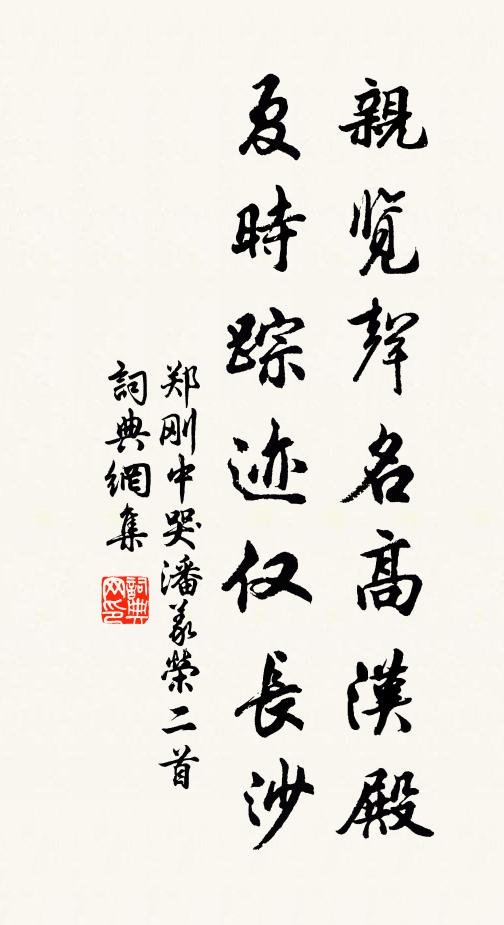 親览聲名高漢殿
夏時踪迹仅長沙
郑刚中哭潘義榮二首
詞典網集
詞典网印